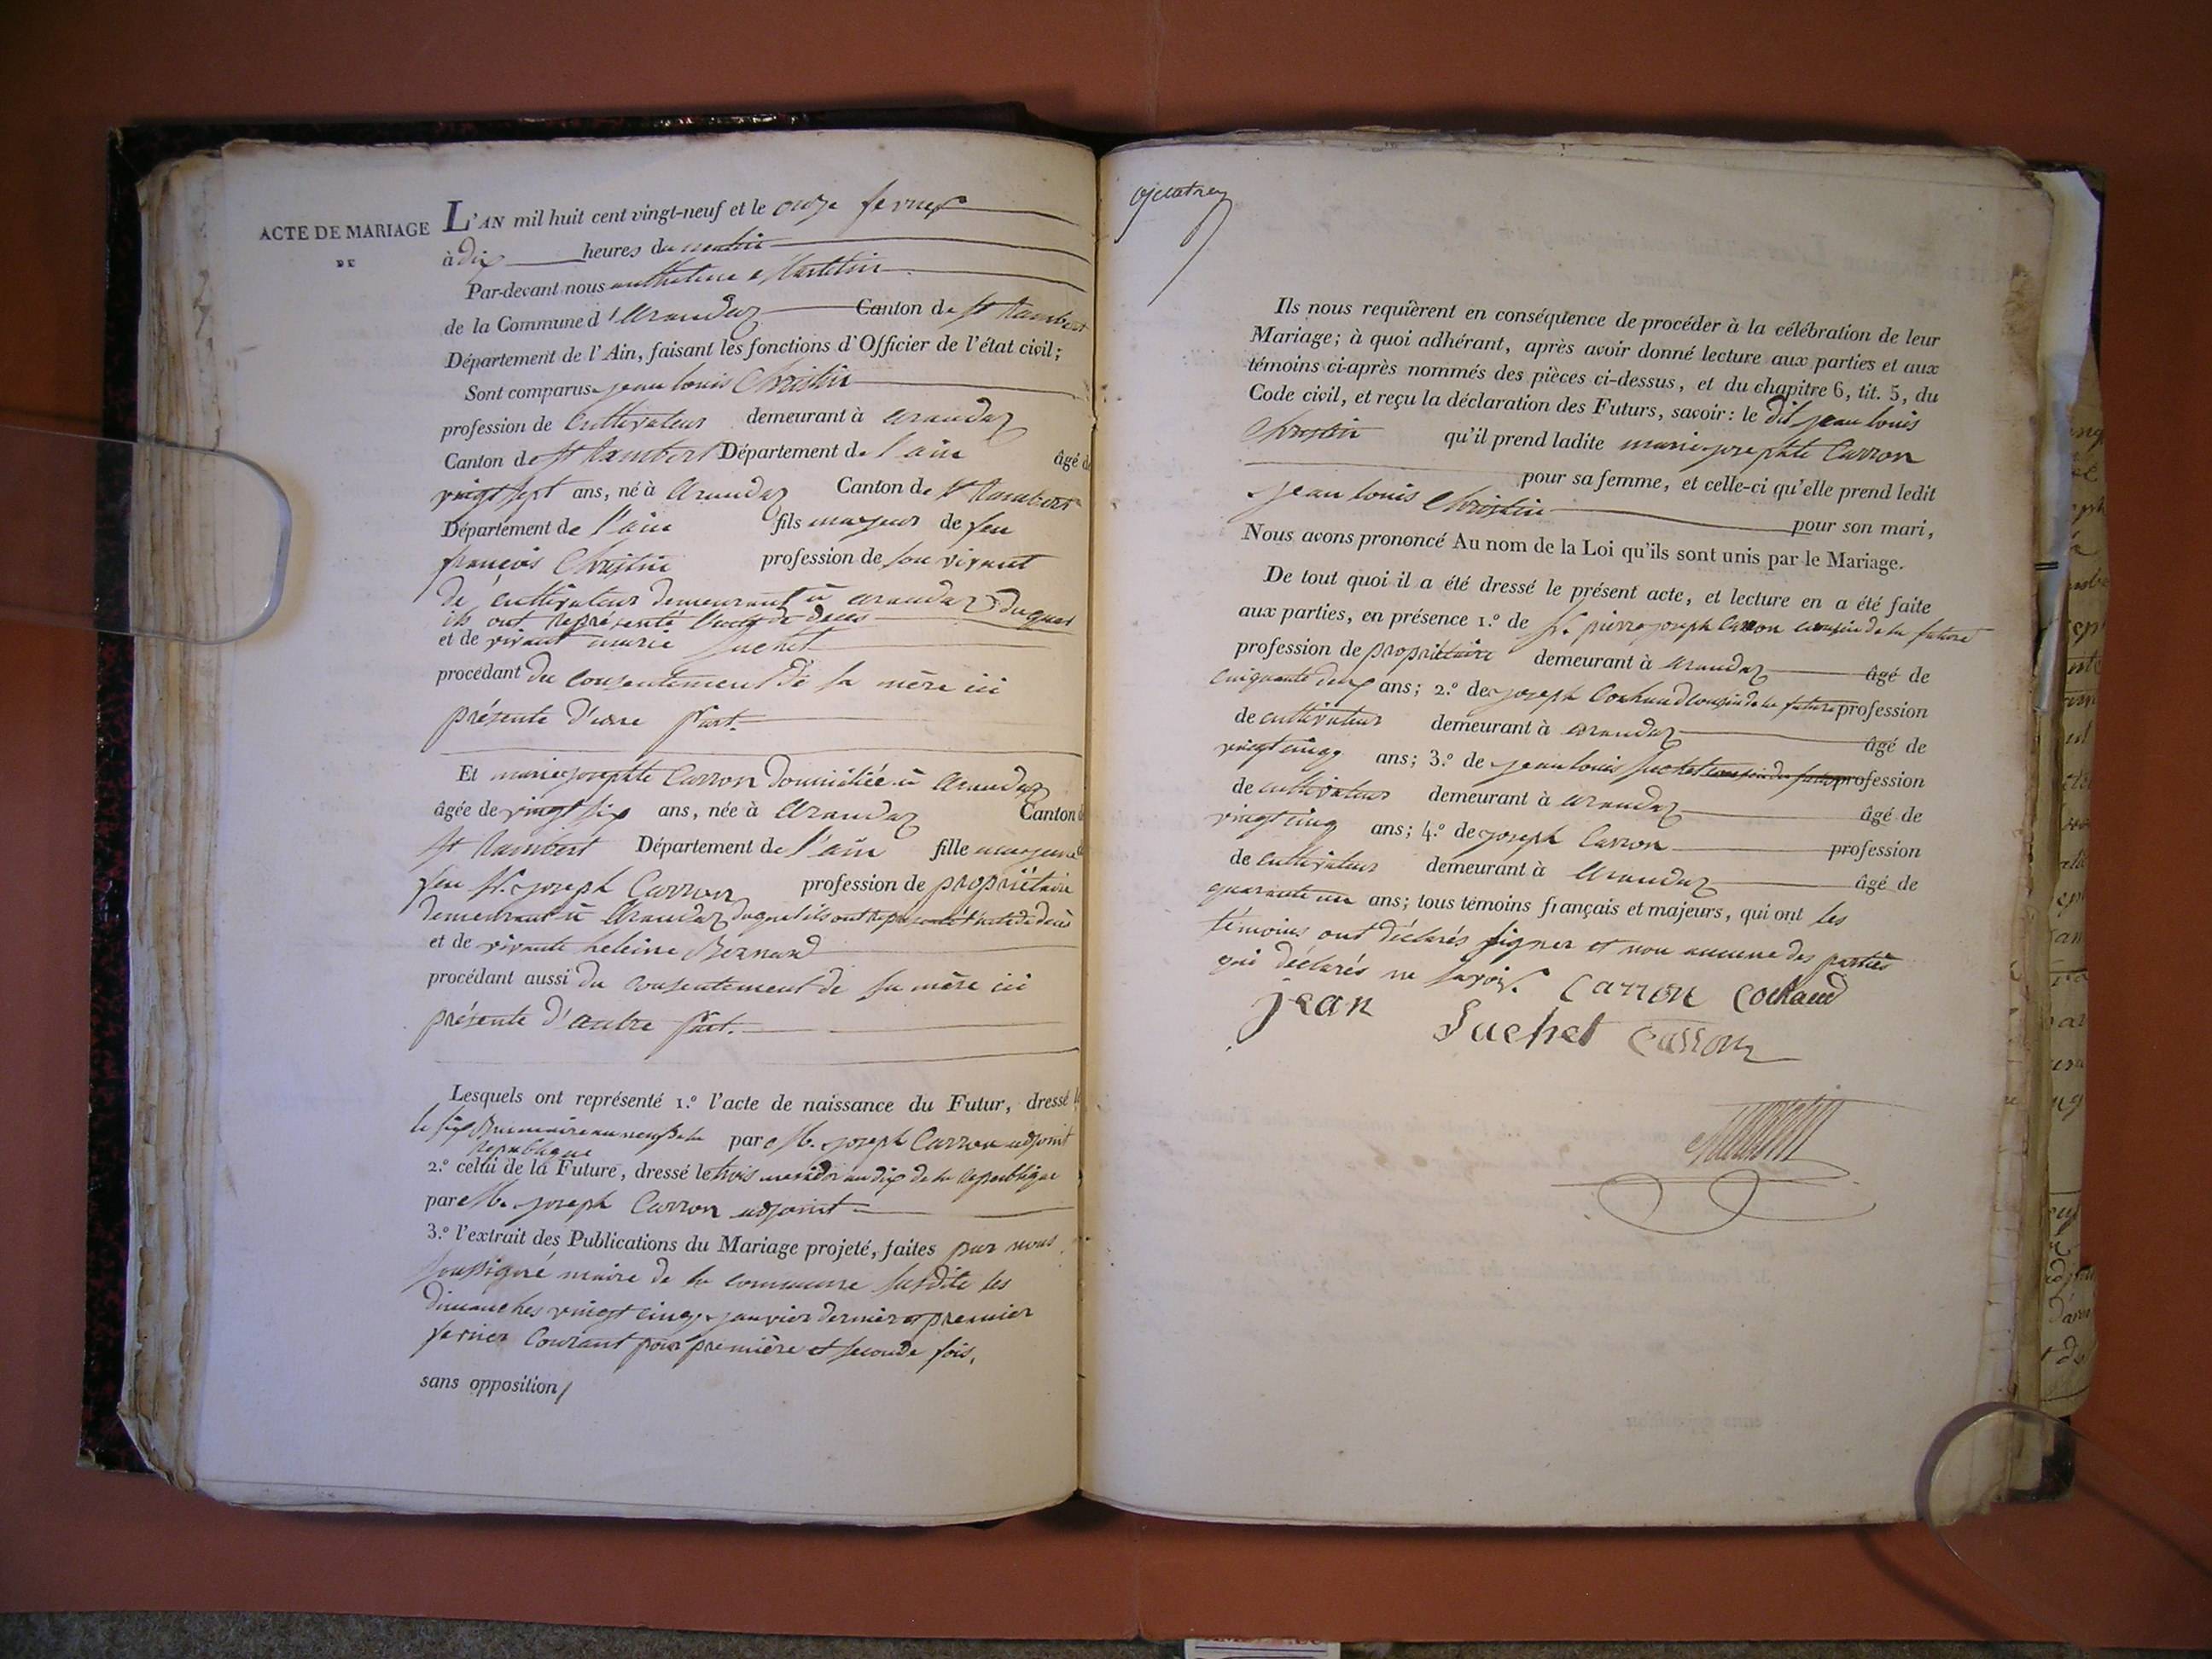 ACTE DE MARIAGE
DE
L'AN mil huit cent vingt-neuf et le onze fevrier
à dix heures du matin
Par-devant nous anthelme Martelin
de la Commune d'arandaz Canton de st Rambert
Département de l'Ain, faisant les fonctions d'Officier de l'état civil;
Sont comparus jean louis Christin
profession de Cultivateur demeurant à arandaz
Canton de st Rambert Département de l'ain âgé de
vingt sept ans, né à arandaz Canton de st Rambert
Département de l'ain fils majeur de feu
francois Christin profession de son vivant
de cultivateur demeurant à arandaz duquel
ils ont représenté l'acte de deces
et de vivant marie Suchet
procédant du consentement de sa mère ici
présente d'une part.
Et marie josephte Carron domiciliée à arandaz
âgée de vingt six ans, née à arandaz Canton de
st Rambert Département de l'ain fille majeure de
feu Sr. joseph Carron profession de propriétaire
demeurant à arandaz duquel ils ont représenté l'acte de décès
et de vivante heleine Bernard
procédant aussi du consentement de sa mère ici
présente d'autre part.
Lesquels ont représenté 1.º l'acte de naissance du Futur, dressé le
le six Brumaire an neuf de la par Mr. joseph Carron adjoint
republique
2.º celui de la Future, dressé le trois messidor an dix de la republique
par Mr. joseph Carron adjoint
3.º l'extrait des Publications du Mariage projeté, faites par nous
soussigné maire de la commune susdite les
dimanches vingt cinq janvier dernier et premier
fevrier Courant pour première et seconde fois,
sans opposition
Ils nous requièrent en conséquence de procéder à la célébration de leur
Mariage; à quoi adhérant, après avoir donné lecture aux parties et aux
témoins ci-après nommés des pièces ci-dessus, et du chapitre 6, tit. 5, du
Code civil, et reçu la déclaration des Futurs, savoir: le dit jean louis
Christin qu'il prend ladite marie josephte Carron
pour sa femme, et celle-ci qu'elle prend ledit
jean louis Christin pour son mari,
Nous avons prononcé Au nom de la Loi qu'ils sont unis par le Mariage.
De tout quoi il a été dressé le présent acte, et lecture en a été faite
aux parties, en présence 1.º de Sr. pierre joseph Carron cousin de la future
profession de propriétaire demeurant à arandaz âgé de
cinquante deux ans; 2.º de joseph Cochaud cousin de la future profession
de cultivateur demeurant à arandaz âgé de
vingt cinq ans; 3.º de jean louis Suchet cousin du futur profession
de cultivateur demeurant à arandaz âgé de
vingt cinq ans; 4.º de joseph Carron profession
de cultivateur demeurant à arandaz âgé de
quarante un ans; tous témoins français et majeurs, qui ont les
témoins ont déclarés signer et non aucune des parties
qui déclarés ne savoir. Carron Cochaud
jean Suchet Carron